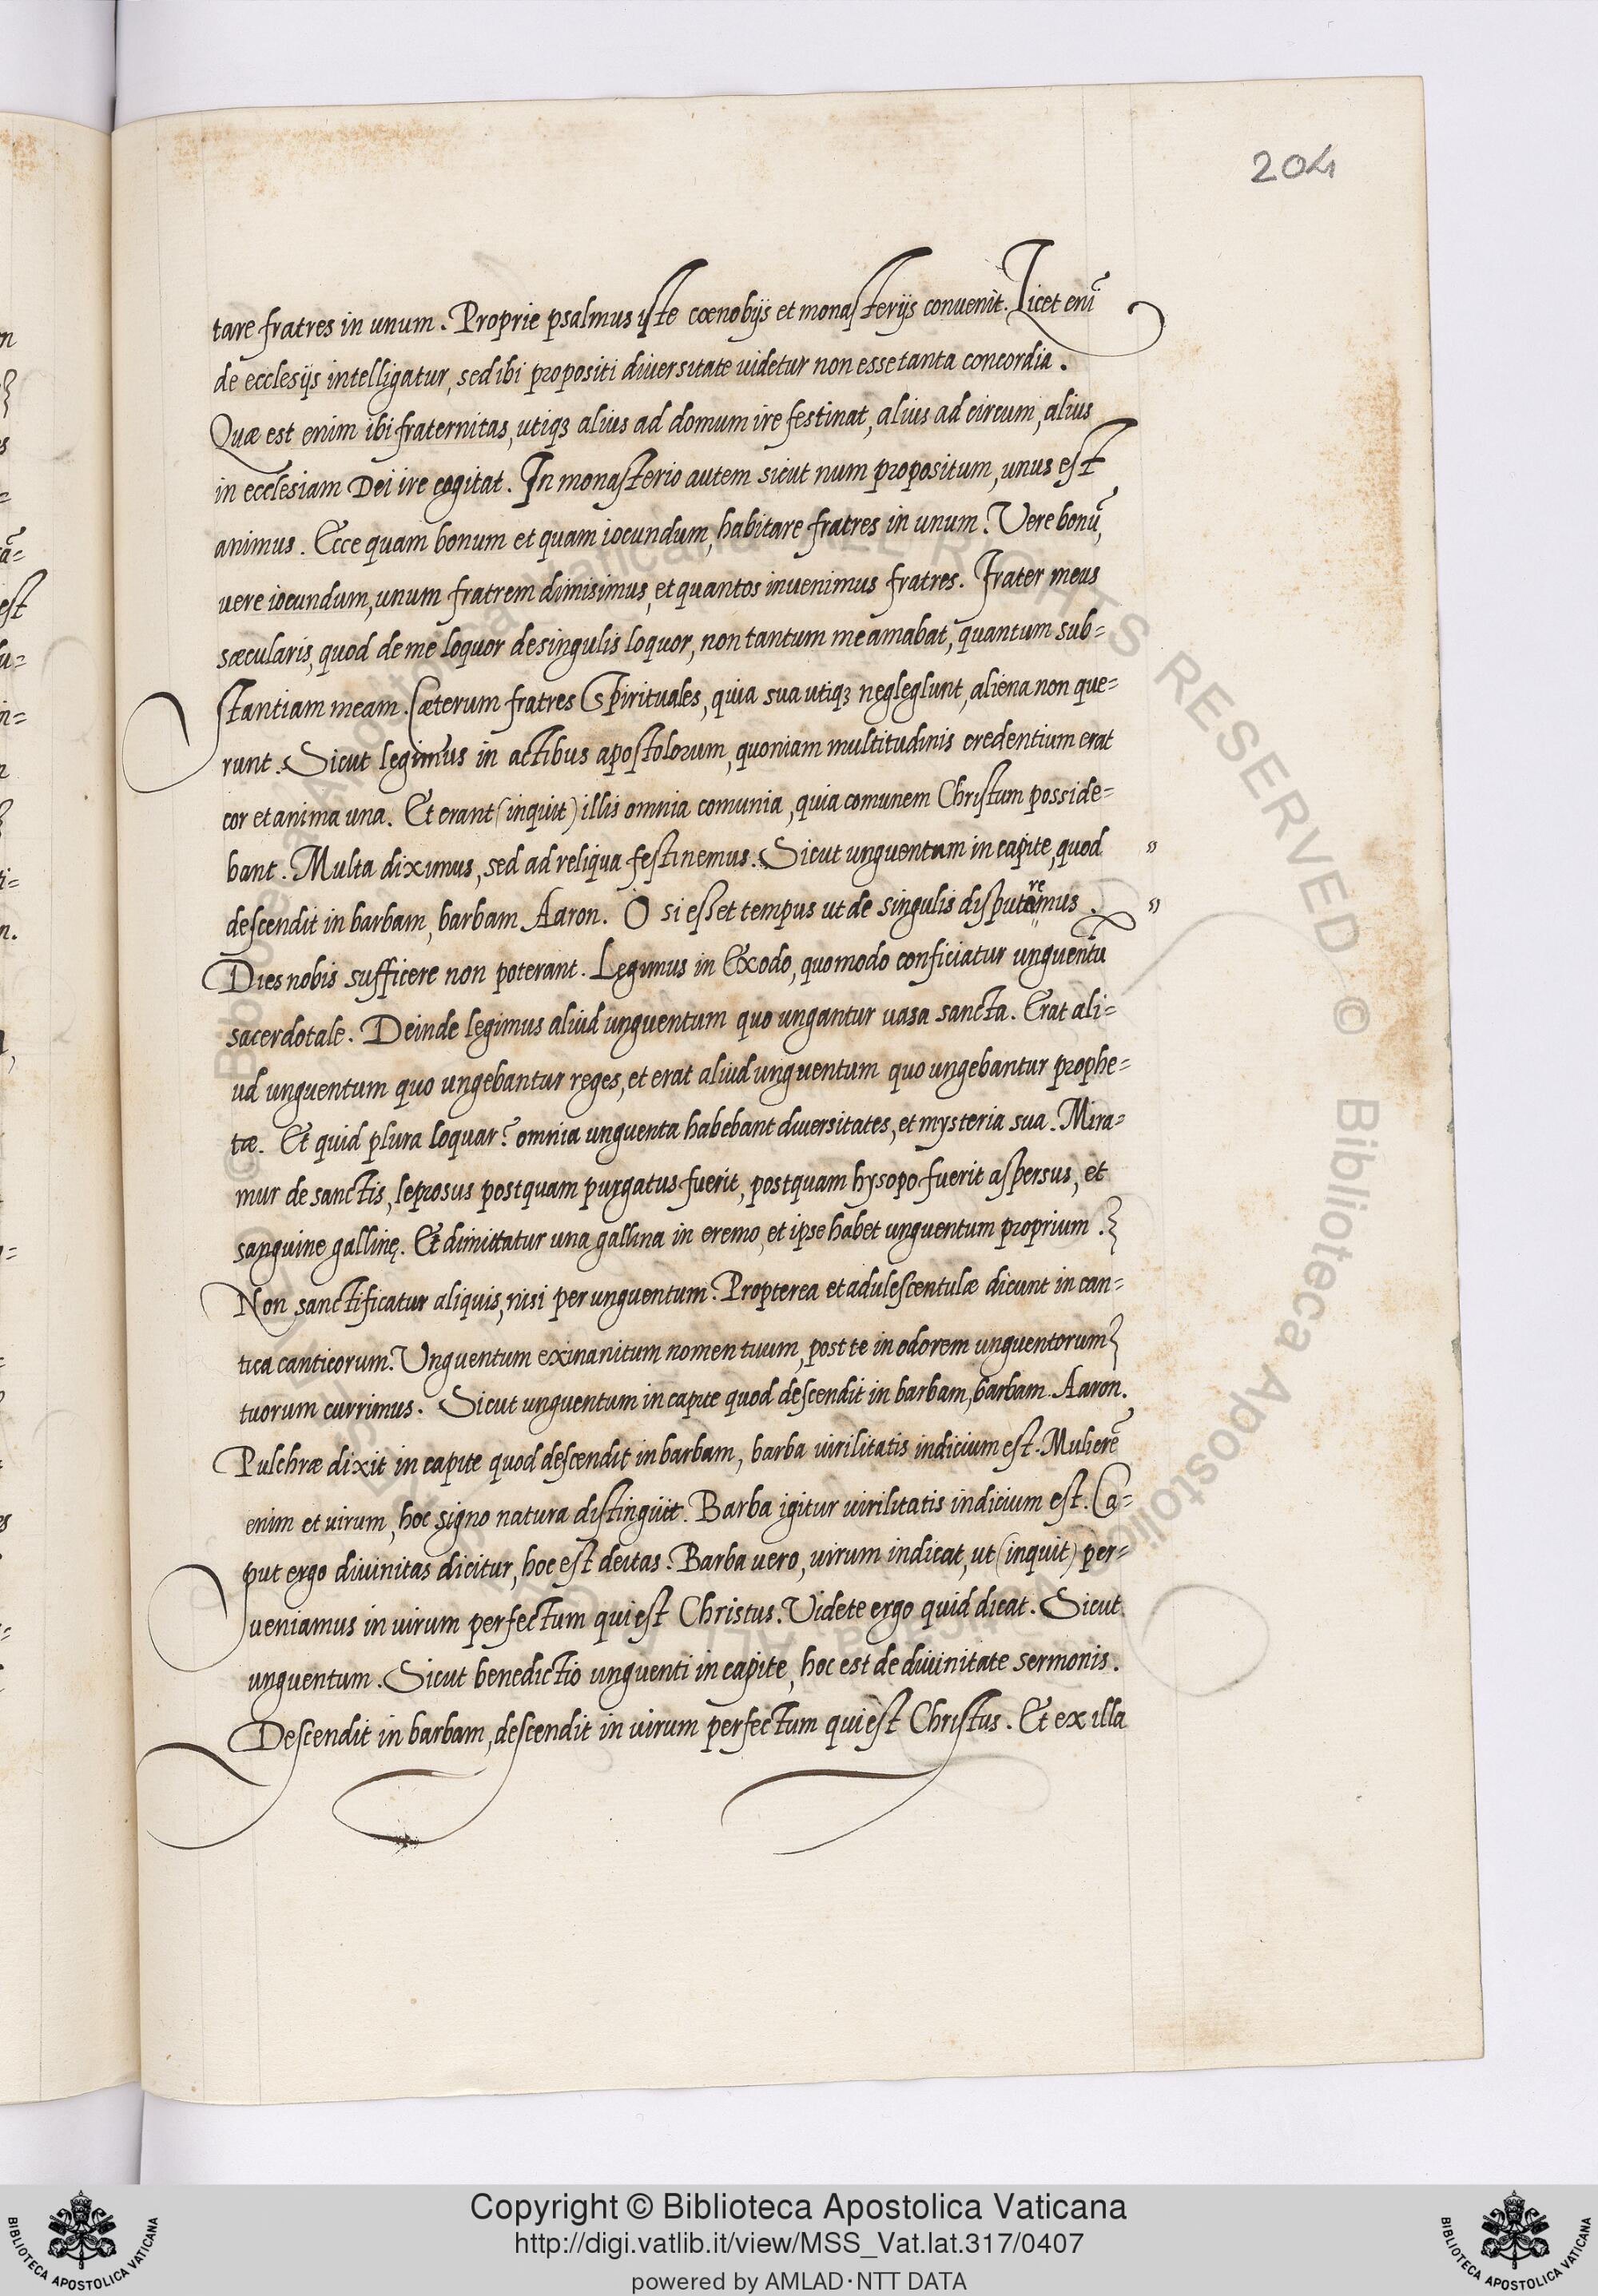 204
tare fratres in unum. Proprie psalmus iste coenobijs et monasterijs convenit. Licet enĩ
de ecclesijs intelligatur, sed ibi propositi diversitate videtur non esse tanta concordia.
Quæ est enim ibi fraternitas, utiqꝫ alius ad domum ire festinat, alius ad circum, alius
in ecclesiam Dei ire cogitat. In monasterio autem sicut num propositum, unus est
animus. Ecce quam bonum et quam iocundum, habitare fratres in unum. Vere bonũ,
vere iocundum, unum fratrem dimisimus, et quantos invenimus fratres. Frater meus
sæcularis, quod de me loquor de singulis loquor, non tantum me amabat, quantum sub=
stantiam meam. Cæterum fratres spirituales, quia sua utiqꝫ negleglunt, aliena non que=
runt. Sicut legimus in actibus apostolorum, quoniam multitudinis credentium erat
cor et anima una. Et erant (inquit) illis omnia comunia, quia comunem Christum posside=
bant. Multa diximus, sed ad reliqua festinemus. Sicut unguentum in capite, quod "
descendit in barbam, barbam Aaron. O si esset tempus ut de singulis disputaremus. "
Dies nobis sufficere non poterant. Legimus in Exodo, quomodo conficiatur unguentũ
sacerdotale. Deinde legimus aliud unguentum quo ungantur vasa sancta. Erat ali=
ud unguentum quo ungebantur reges, et erat aliud unguentum quo ungebantur prophe=
tæ. Et quid plura loquar? omnia unguenta habebant diversitates, et mysteria sua. Mira=
mur de sanctis, leprosus postquam purgatus fuerit, postquam hysopo fuerit aspersus, et
sanguine gallinę. Et dimittatur una gallina in eremo, et ipse habet unguentum proprium.
Non sanctificatur aliquis, nisi per unguentum. Propterea et adulescentulæ dicunt in can=
tica canticorum. Unguentum exinanitum nomen tuum, post te in odorem unguentorum
tuorum currimus. Sicut unguentum in capite quod descendit in barbam, barbam Aaron.
Pulchræ dixit in capite quod descendit in barbam, barba virilitatis indicium est. Mulierẽ
enim et virum, hoc signo natura distinguit. Barba igitur virilitatis indicium est. Ca=
put ergo divinitas dicitur, hoc est deitas. Barba vero, virum indicat, ut (inquit) per=
veniamus in virum perfectum qui est Christus. Videte ergo quid dicat. Sicut
unguentum. Sicut benedictio unguenti in capite, hoc est de divinitate sermonis.
Descendit in barbam, descendit in virum perfectum qui est Christus. Et ex illa
Copyright © Biblioteca Apostolica Vaticana
http://digi.vatlib.it/view/MSS_Vat.lat.317/0407
powered by AMLAD·NTT DATA
BIBLIOTECA APOSTOLICA VATICANA
BIBLIOTECA APOSTOLICA VATICANA